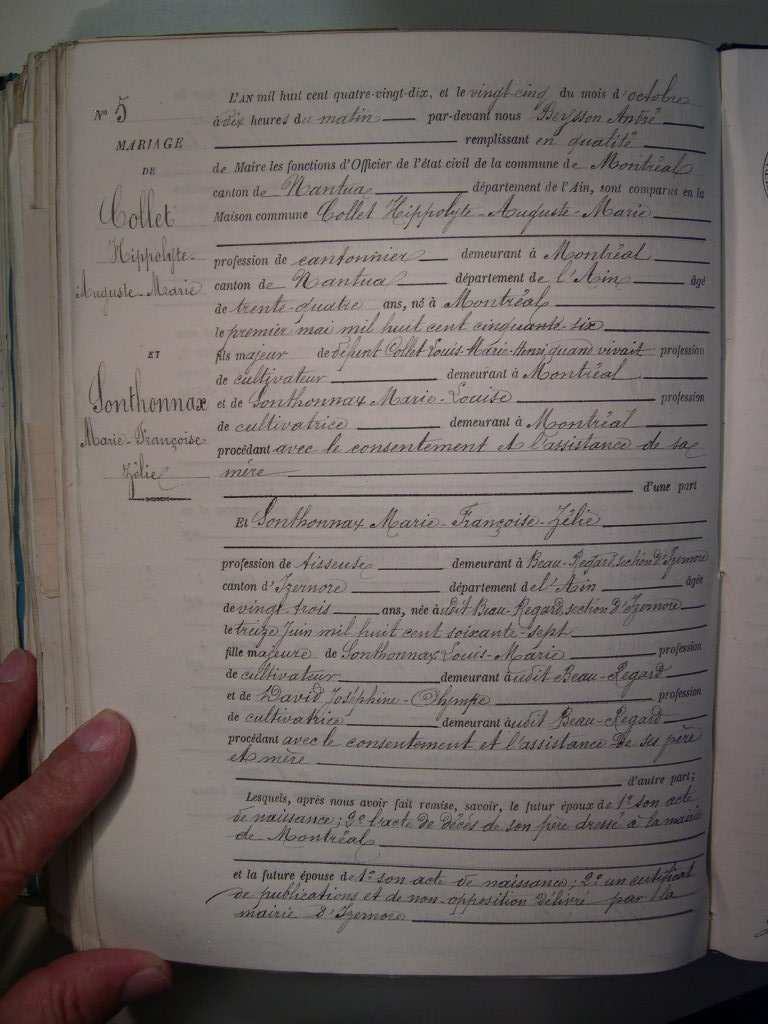 N° 5
MARIAGE
DE
Collet
Hippolyte-
Auguste-Marie
ET
Sonthonnax
Marie-Françoise
Zélie
L'AN mil huit cent quatre-vingt-dix, et le vingt-cinq du mois d'octobre
à dix heures du matin par-devant nous Beysson André
remplissant en qualité
de Maire les fonctions d'Officier de l'état civil de la commune de Montréal
canton de Nantua département de l'Ain, sont comparus en la
Maison commune Collet Hippolyte-Auguste-Marie
profession de cantonnier demeurant à Montréal
canton de Nantua département de l'Ain âgé
de trente-quatre ans, né à Montréal
le premier mai mil huit cent cinquante-six
fils majeur de défunt Collet Louis-Marie-Henri quand vivait profession
de cultivateur demeurant à Montréal
et de Sonthonnax Marie-Louise profession
de cultivatrice demeurant à Montréal
procédant avec le consentement et l'assistance de sa
mère
d'une part
Et Sonthonnax Marie-Françoise-Zélie
profession de tisseuse demeurant à Beau-Regard, section d'Izernore
canton d'Izernore département de l'Ain âgée
de vingt-trois ans, née à udit Beau-Regard, section d'Izernore
le treize Juin mil huit cent soixante-sept
fille majeure de Sonthonnax Louis-Marie profession
de cultivateur demeurant à udit Beau-Regard
et de David Joséphine-Olympe profession
de cultivatrice demeurant à udit Beau-Regard
procédant avec le consentement et l'assistance de ses père
et mère
d'autre part;
Lesquels, après nous avoir fait remise, savoir, le futur époux de 1° son acte
de naissance; 2° l'acte de décès de son père dressé à la mairie
de Montréal
et la future épouse de 1° son acte de naissance; 2° un certificat
de publications et de non-opposition délivré par la
mairie d'Izernore